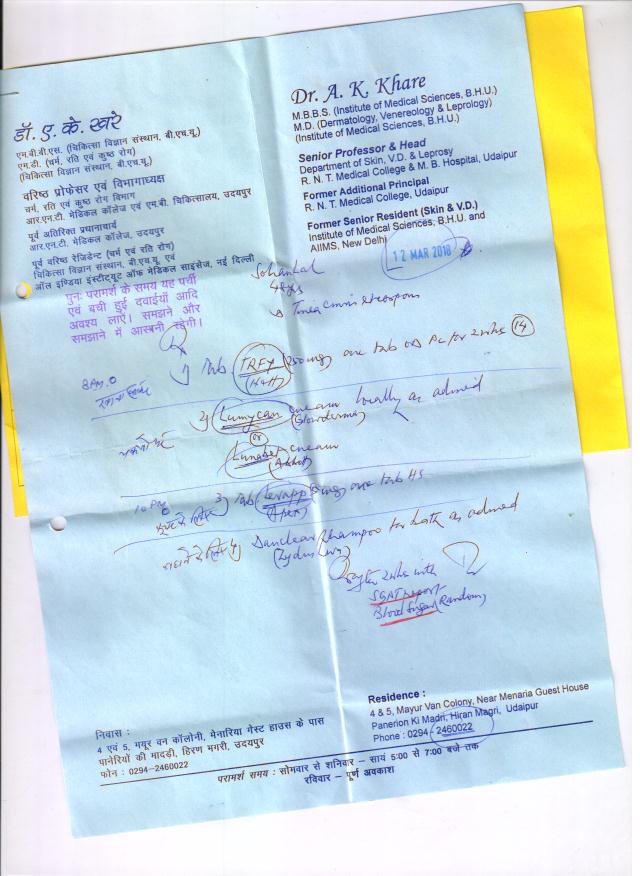 डॉ. ए. के. खरे
एम.बी.बी.एस. (चिकित्सा विज्ञान संस्थान, बी.एच.यू.)
एम.डी. (चर्म, रति एवं कुष्ठ रोग)
(चिकित्सा विज्ञान संस्थान, बी.एच.यू.)
वरिष्ठ प्रोफेसर एवं विभागाध्यक्ष
चर्म, रति एवं कुष्ठ रोग विभाग
आर.एन.टी. मेडिकल कॉलेज एवं एम.बी. चिकित्सालय, उदयपुर
पूर्व अतिरिक्त प्रधानाचार्य
आर.एन.टी. मेडिकल कॉलेज, उदयपुर
पूर्व वरिष्ठ रेजिडेन्ट (चर्म एवं रति रोग)
चिकित्सा विज्ञान संस्थान, बी.एच.यू. एवं
ऑल इण्डिया इंस्टीट्यूट ऑफ मेडिकल साइंसेज, नई दिल्ली
पुनः परामर्श के समय यह पर्ची
एवं बची हुई दवाईयाँ आदि
अवश्य लाएं। समझने और
समझाने में आसानी रहेगी।
Dr. A. K. Khare
M.B.B.S. (Institute of Medical Sciences, B.H.U.)
M.D. (Dermatology, Venereology & Leprology)
(Institute of Medical Sciences, B.H.U.)
Senior Professor & Head
Department of Skin, V.D. & Leprosy
R. N. T. Medical College & M. B. Hospital, Udaipur
Former Additional Principal
R. N. T. Medical College, Udaipur
Former Senior Resident (Skin & V.D.)
Institute of Medical Sciences, B.H.U. and
AIIMS, New Delhi
12 MAR 2018
Tinea cruris et corporis
8 PM
1) Tab TRFY (250mg) one tab OD PC for 2 wks (14)
2) Lumycan cream locally as advised
(Glowderma)
or
cream
(Abbott)
10 PM
3) Tab one tab HS
4) Danclear shampoo for bath as advised
(Zydus
after 2 wks with
SGPT report
Blood Sugar (Random)
Residence :
4 & 5, Mayur Van Colony, Near Menaria Guest House
Panerion Ki Madri, Hiran Magri, Udaipur
Phone : 0294 - 2460022
निवास :
4 एवं 5, मयूर वन कॉलोनी, मेनारिया गेस्ट हाउस के पास
पानेरियों की मादड़ी, हिरण मगरी, उदयपुर
फोन : 0294-2460022
परामर्श समय : सोमवार से शनिवार - सायं 5:00 से 7:00 बजे तक
रविवार - पूर्ण अवकाश